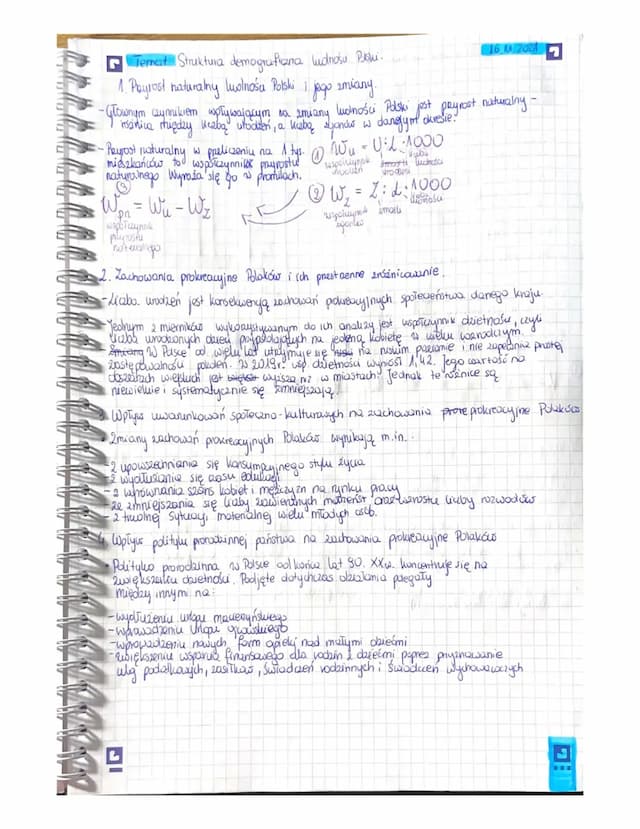 Temat Struktura demograficzna ludności Polski.
16.11.2021
1. Przyrost naturalny ludności Polski i jego zmiany.
- Głównym czynnikiem wpływającym na zmiany ludności Polski jest przyrost naturalny -
różnica między liczbą urodzeń, a liczbą zgonów w danym okresie.
- Przyrost naturalny w przeliczeniu na 1 tys.
mieszkańców to współczynnik przyrostu
naturalnego. Wyraża się go w promilach.
① Wu = U : L · 1000
współczynnik urodzeń
urodzenia
liczba ludności
② Wz = Z : L · 1000
współczynnik zgonów
zmarli
ludności
③
Wpn = Wu - Wz
współczynnik
przyrostu
naturalnego
2. Zachowania prokreacyjne Polaków i ich przestrzenne zróżnicowanie.
- Liczba urodzeń jest konsekwencją zachowań prokreacyjnych społeczeństwa danego kraju.
Jednym z mierników wykorzystywanym do ich analizy jest współczynnik dzietności, czyli
liczba urodzonych dzieci przypadających na jedną kobietę w wieku rozrodczym.
W Polsce od wielu lat utrzymuje się na niskim poziomie i nie zapewnia prostej
zastępowalności pokoleń. W 2019r. wsp. dzietności wynosił 1,42. Jego wartość na
obszarach wiejskich jest wyższa niż w miastach, jednak te różnice są
niewielkie i systematycznie się zmniejszają.
3. Wpływ uwarunkowań społeczno-kulturowych na zachowania prokreacyjne Polaków
• Zmiany zachowań prokreacyjnych Polaków wynikają m.in.:
- z upowszechniania się konsumpcyjnego stylu życia
- z wydłużania się czasu edukacji
- z wyrównania szans kobiet i mężczyzn na rynku pracy
- ze zmniejszania się liczby zawieranych małżeństw oraz wzrostu liczby rozwodów
- z trudnej sytuacji materialnej wielu młodych osób.
4. Wpływ polityki prorodzinnej państwa na zachowania prokreacyjne Polaków
• Polityka prorodzinna w Polsce od końca lat 90. XX w. koncentruje się na
zwiększeniu dzietności. Podjęte dotychczas działania polegały
między innymi na:
- wydłużeniu urlopu macierzyńskiego
- wprowadzeniu urlopu ojcowskiego
- wprowadzeniu nowych form opieki nad małymi dziećmi
- zwiększeniu wsparcia finansowego dla rodzin z dziećmi poprzez przyznawanie
ulg podatkowych, zasiłków, świadczeń rodzinnych i świadczeń wychowawczych